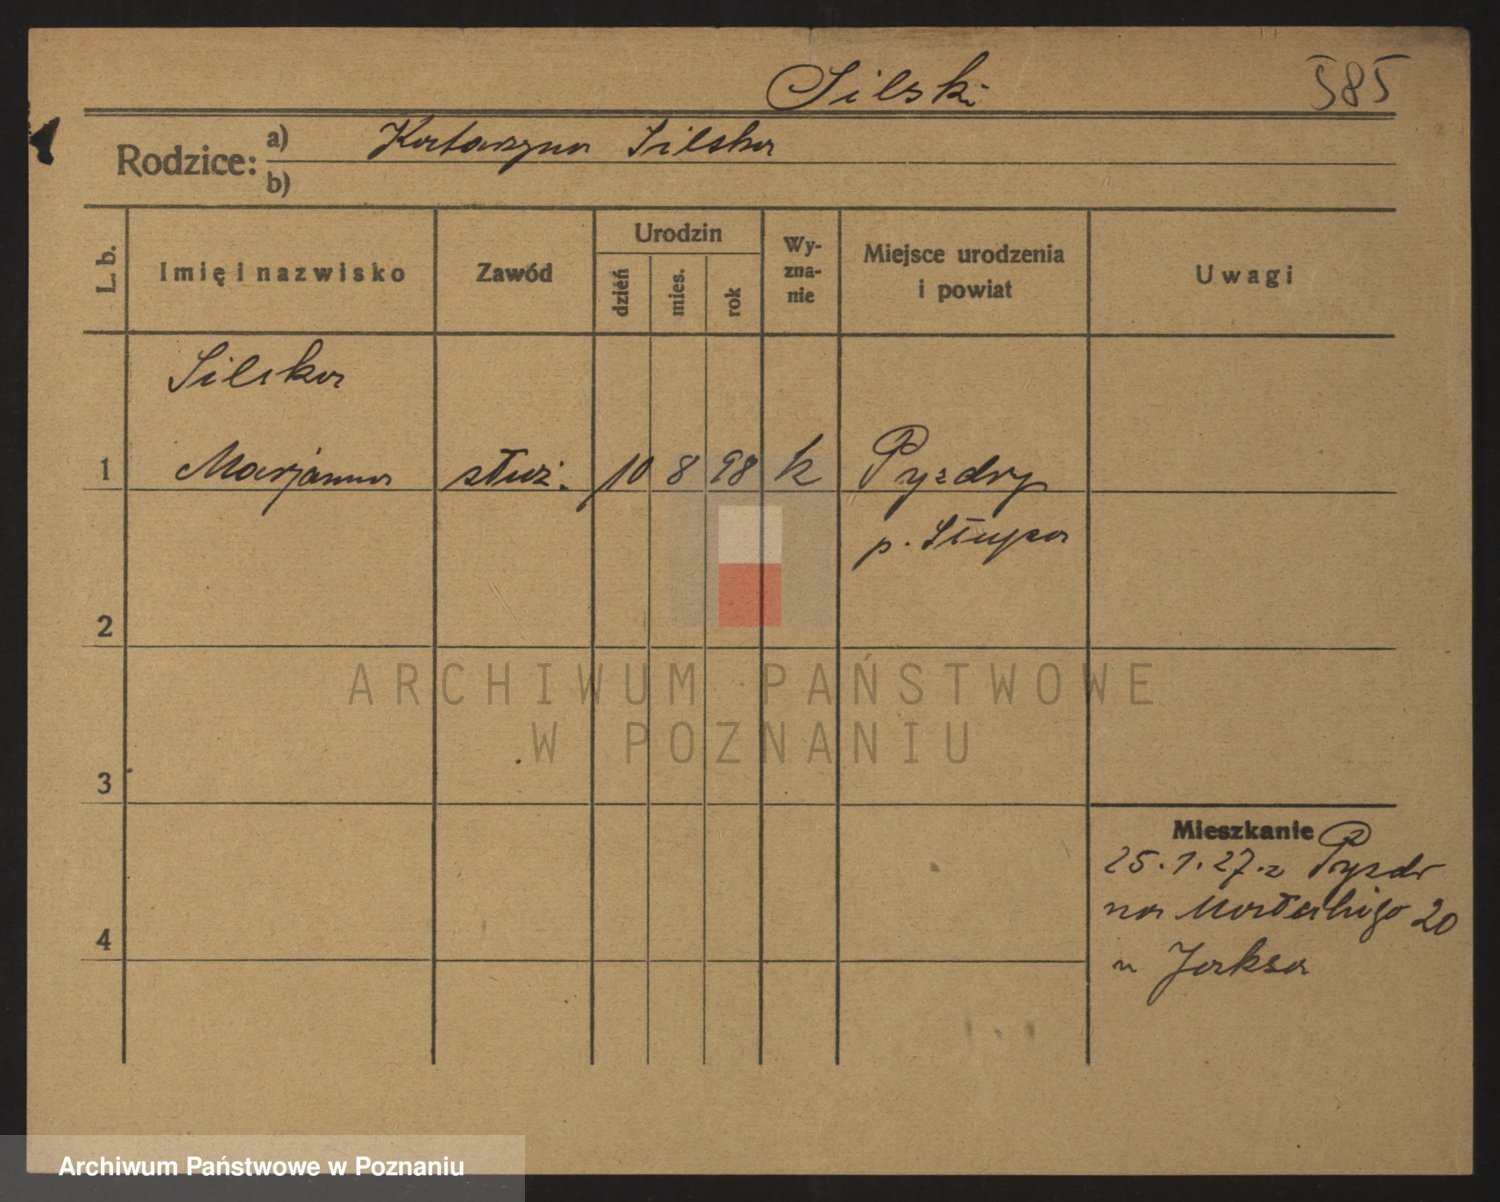 Silski 585
Rodzice: a) Katarzyna Silska
b)
L. b. Imię i nazwisko Zawód Urodzin dzień mies. rok Wy-zna-nie Miejsce urodzenia i powiat Uwagi
Silska
1 Marjanna służ. 10 8 98 k Pyzdry
p. Słupca
2
ARCHIWUM PAŃSTWOWE
W POZNANIU
3
Mieszkanie
25.1.27. z Pyzdr
na 20
4
u Jaksa
Archiwum Państwowe w Poznaniu